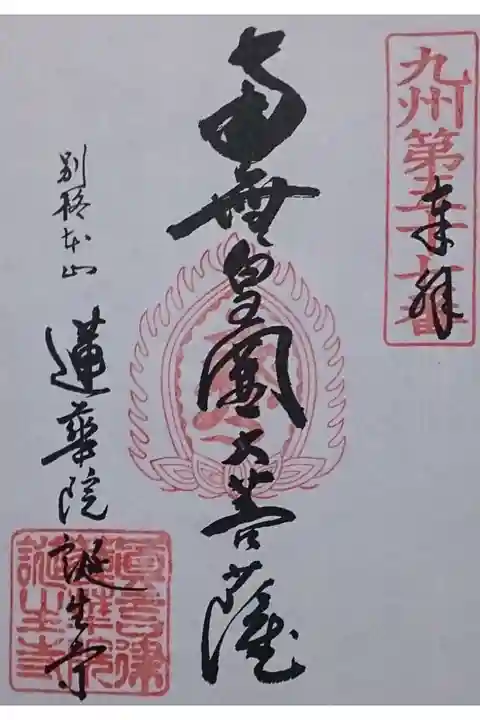 九州第五十七番
奉拝
南無皇円大菩薩
別格本山
蓮華院誕生寺
真言律
蓮華院
誕生寺